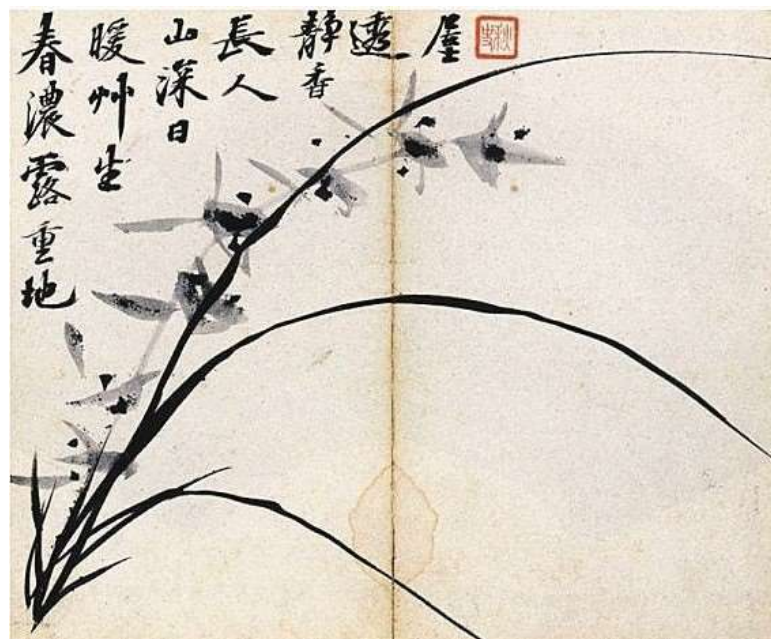 春濃露重地
暖艸生
山深日
長人
靜香
透
秋史